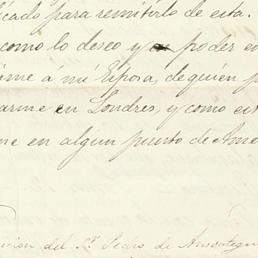 icado para remitirlo de esta.
como lo deseo y poder en
úme á mi Esposa, de quien p
arme en Londres, y como est
ne en algun puerto de Ame
cion del Sr. Pedro de